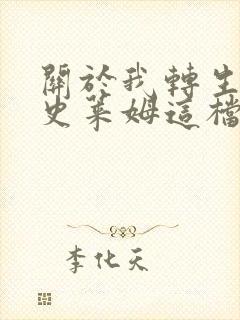 關於我轉生
史萊姆這檔
李化天